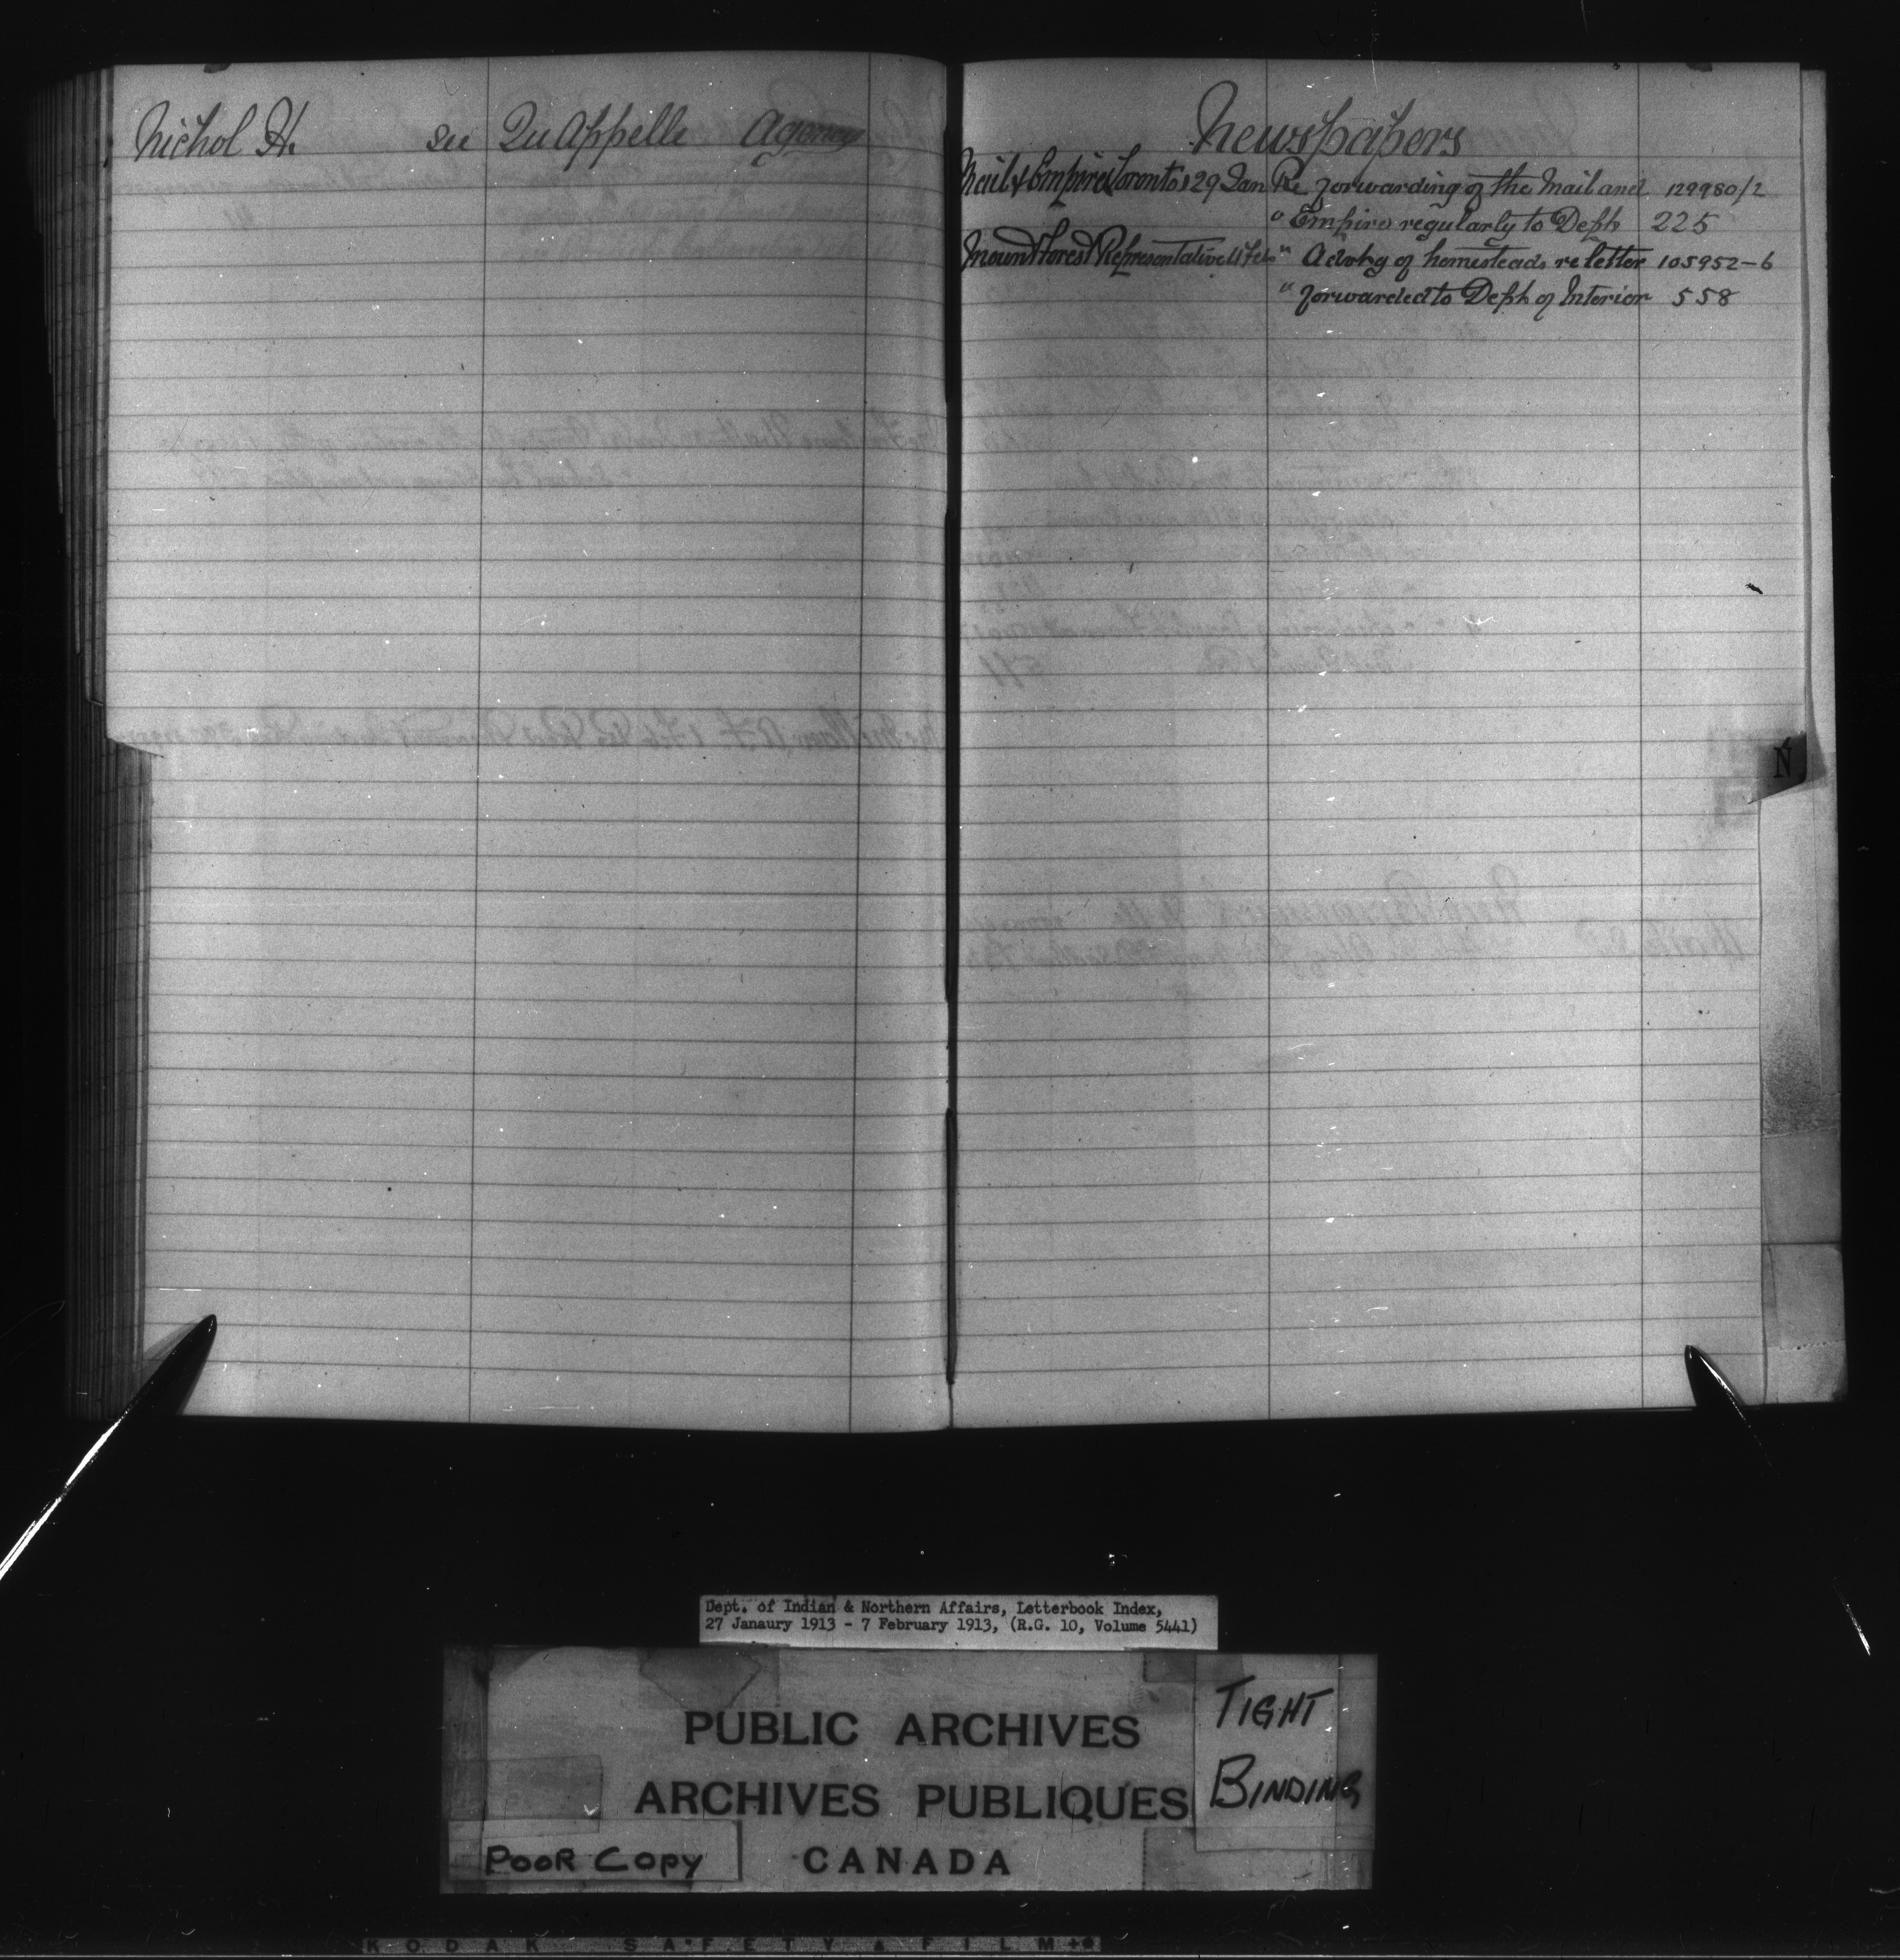 Nichol H. see Qu Appelle Agency
Newspapers
Mail & Empire Toronto 29 Jan Re forwarding of the Mail and 129980/2
" Empire regularly to Dept 225
Mount Forest Representative Feb " Advtg of homesteads re letter 105952-6
" forwarded to Dept of Interior 558
N
Dept. of Indian & Northern Affairs, Letterbook Index,
27 Janaury 1913 - 7 February 1913, (R.G. 10, Volume 5441)
PUBLIC ARCHIVES
ARCHIVES PUBLIQUES
CANADA
TIGHT
BINDING
POOR COPY
KODAK SAFETY FILM